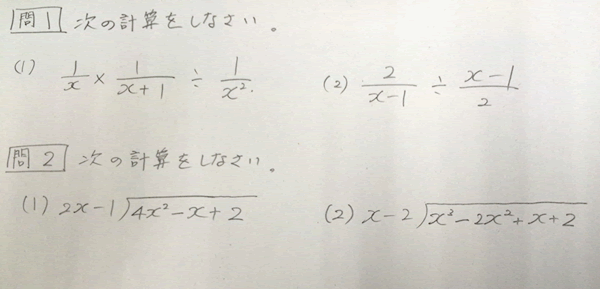 問1 次の計算をしなさい。
(1) 1/x × 1/(x+1) ÷ 1/x². (2) 2/(x-1) ÷ (x-1)/2
問2 次の計算をしなさい。
(1) 2x-1)4x²-x+2 (2) x-2)x³-2x²+x+2